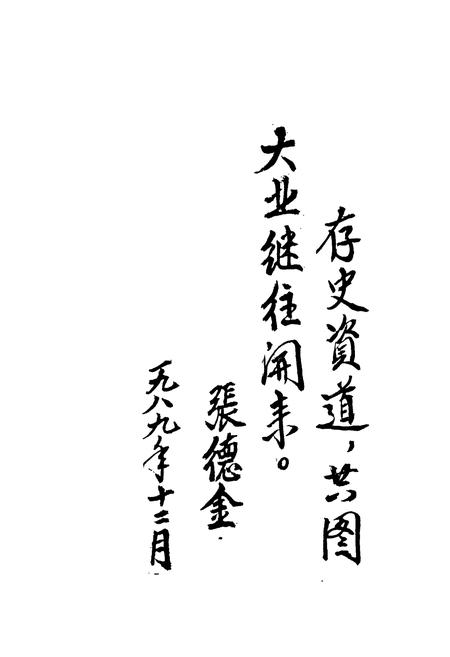 存史資道，共图
大业继往開来。
張德金
一九八九年十二月